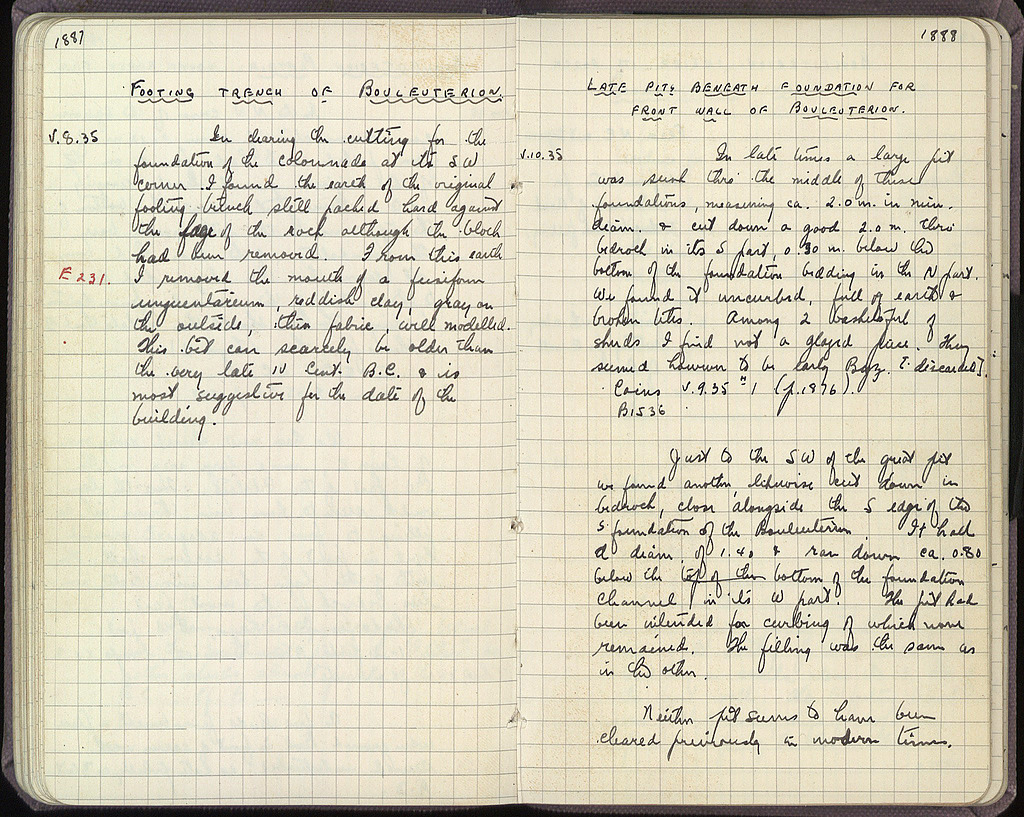 1887
FOOTING TRENCH OF BOULEUTERION.
V.8.35 In clearing the cutting for the
foundation of the colonnade at its SW
corner I found the earth of the original
footing trench still packed hard against
the face of the rock although the block
had been removed. From this earth
E 231. I removed the mouth of a fusiform
unguentarium, reddish clay, gray on
the outside, thin fabric, well modelled.
This bit can scarcely be older than
the very late IV Cent. B.C. & is
most suggestive for the date of the
building.
1888
LATE PITS BENEATH FOUNDATION FOR
FRONT WALL OF BOULEUTERION.
V.10.35 In late times a large pit
was sunk thro' the middle of these
foundations, measuring ca. 2.0 m. in min.
diam. & cut down a good 2.0 m. thro
bedrock in its S part, 0.30 m. below the
bottom of the foundation bedding in the N part.
We found it uncurbed, full of earth &
broken bits. Among 2 basketsful of
sherds I find not a glazed piece. They
seemed however to be early Byz. [: discarded].
Coins V.9.35 #1 (p.1876).
B1536
Just to the SW of the great pit
we found another, likewise cut down in
bedrock, close alongside the S edge of the
S foundation of the Bouleuterion It had
a diam. of 1.40 & ran down ca. 0.80
below the top of the bottom of the foundation
channel in its W part. The pit had
been intended for curbing of which none
remained. The filling was the same as
in the other.
Neither pit seems to have been
cleared previously in modern times.